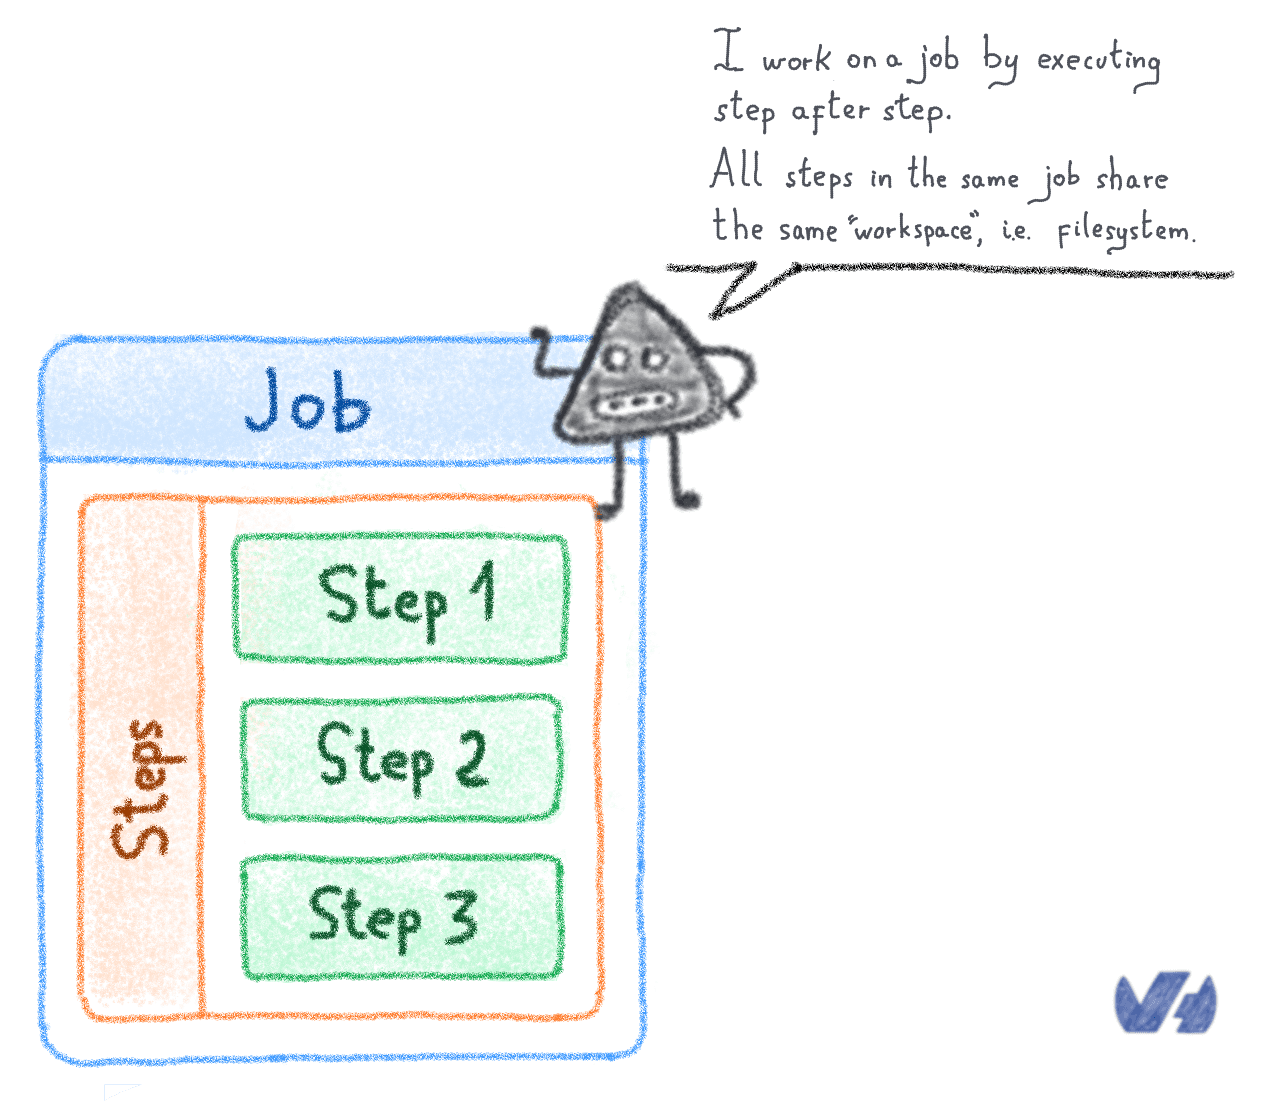 I work on a job by executing
step after step.
All steps in the same job share
the same "workspace", i.e. filesystem.
Job
Steps
Step 1
Step 2
Step 3